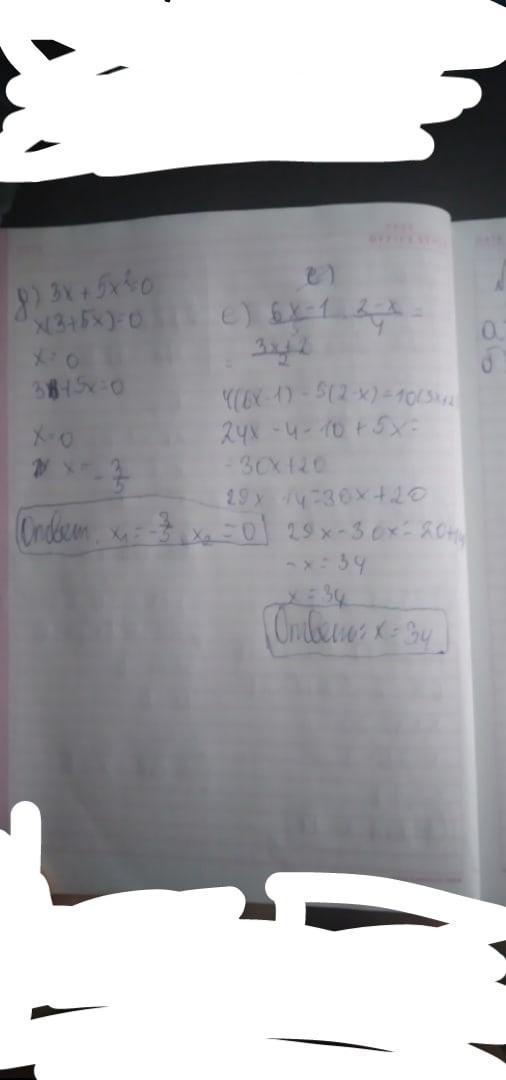 д) 3x + 5x²=0
x(3+5x)=0
x = 0
3+5x=0
x=0
x = -3/5
Ответ: x₁ = -3/5, x₂ = 0
е)
е) 6x-1 2-x/4 =
= 3x+2/2
4(6x-1) - 5(2-x)=10(3x+2
24x - 4 - 10 + 5x =
-30x+20
29x 14=30x+20
29x-30x = 20+14
-x = 34
x = 34
Ответ: x = 34